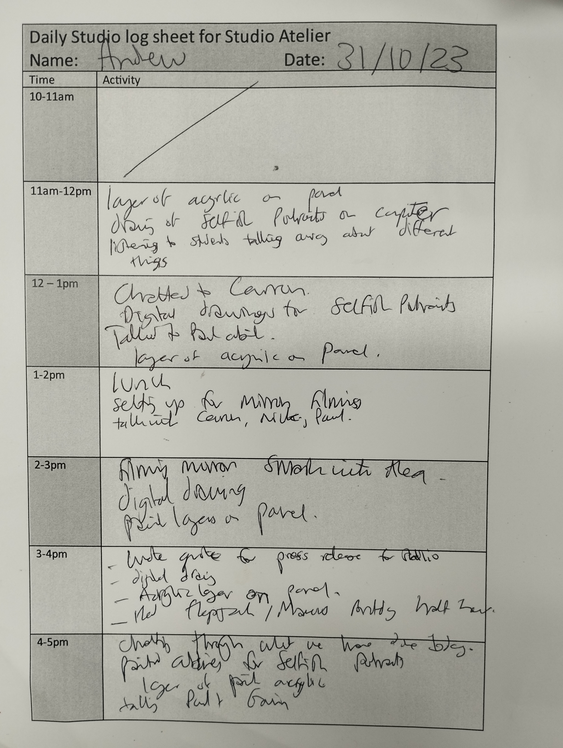 Daily Studio log sheet for Studio Atelier
Name: Andrew Date: 31/10/23
Time Activity
10-11am
11am-12pm
layer of acrylic on panel
drawing of Selfish Portraits on computer
listening to students talking away about different
things
12 – 1pm
Chatted to
Digital drawings for Selfish Portraits
Talked to Paul
layer of acrylic on Panel.
1-2pm
LUNCH
setting up for Mirror filming
talking Paul.
2-3pm
filming mirror Smash with
digital drawing
paint layers on panel.
3-4pm
- Wrote quote for press release for
- digital drawing
- Acrylic layer on panel.
-
4-5pm
chatting through what we have done today.
painted for Selfish Portraits
layer of paint acrylic
talking Paul +